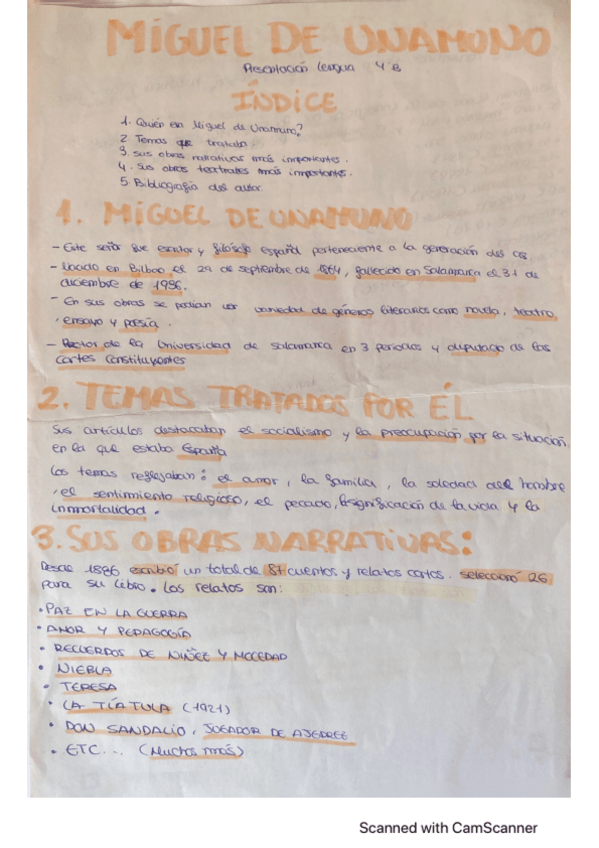 MIGUEL DE UNAMUNO
Presentación lengua 4ºB
ÍNDICE
1. Quién es Miguel de Unamuno?
2 Temas que trataba.
3. sus obras narrativas más importantes.
4. Sus obras teatrales más importantes.
5. Bibliografía del autor
1. MIGUEL DE UNAMUNO
- Este señor fue escritor y filósofo español perteneciente a la generación del 98.
- Nacido en Bilbao el 29 de septiembre de 1864, fallecido en Salamanca el 31 de
diciembre de 1936.
- En sus obras se podían ver variedad de géneros literarios como novela, teatro
, ensayo y poesía.
- Rector de la Universidad de Salamanca en 3 periodos y diputado de las
Cortes Constituyentes
2. TEMAS TRATADOS POR ÉL
Sus artículos destacaban el socialismo y la preocupación por la situación
en la que estaba España
Los temas reflejaban: el amor, la familia, la soledad del hombre
, el sentimiento religioso, el pecado, la significación de la vida y la
inmortalidad.
3. SUS OBRAS NARRATIVAS:
Desde 1886 escribió un total de 87 cuentos y relatos cortos. seleccionó 26
para su libro. Los relatos son:
• PAZ EN LA GUERRA
• AMOR Y PEDAGOGÍA
• RECUERDOS DE NIÑEZ Y MOCEDAD
• NIEBLA
• TERESA
• LA TÍA TULA (1921)
• DON SANDALIO, JUGADOR DE AJEDREZ
• ETC... (Muchos más)
Scanned with CamScanner